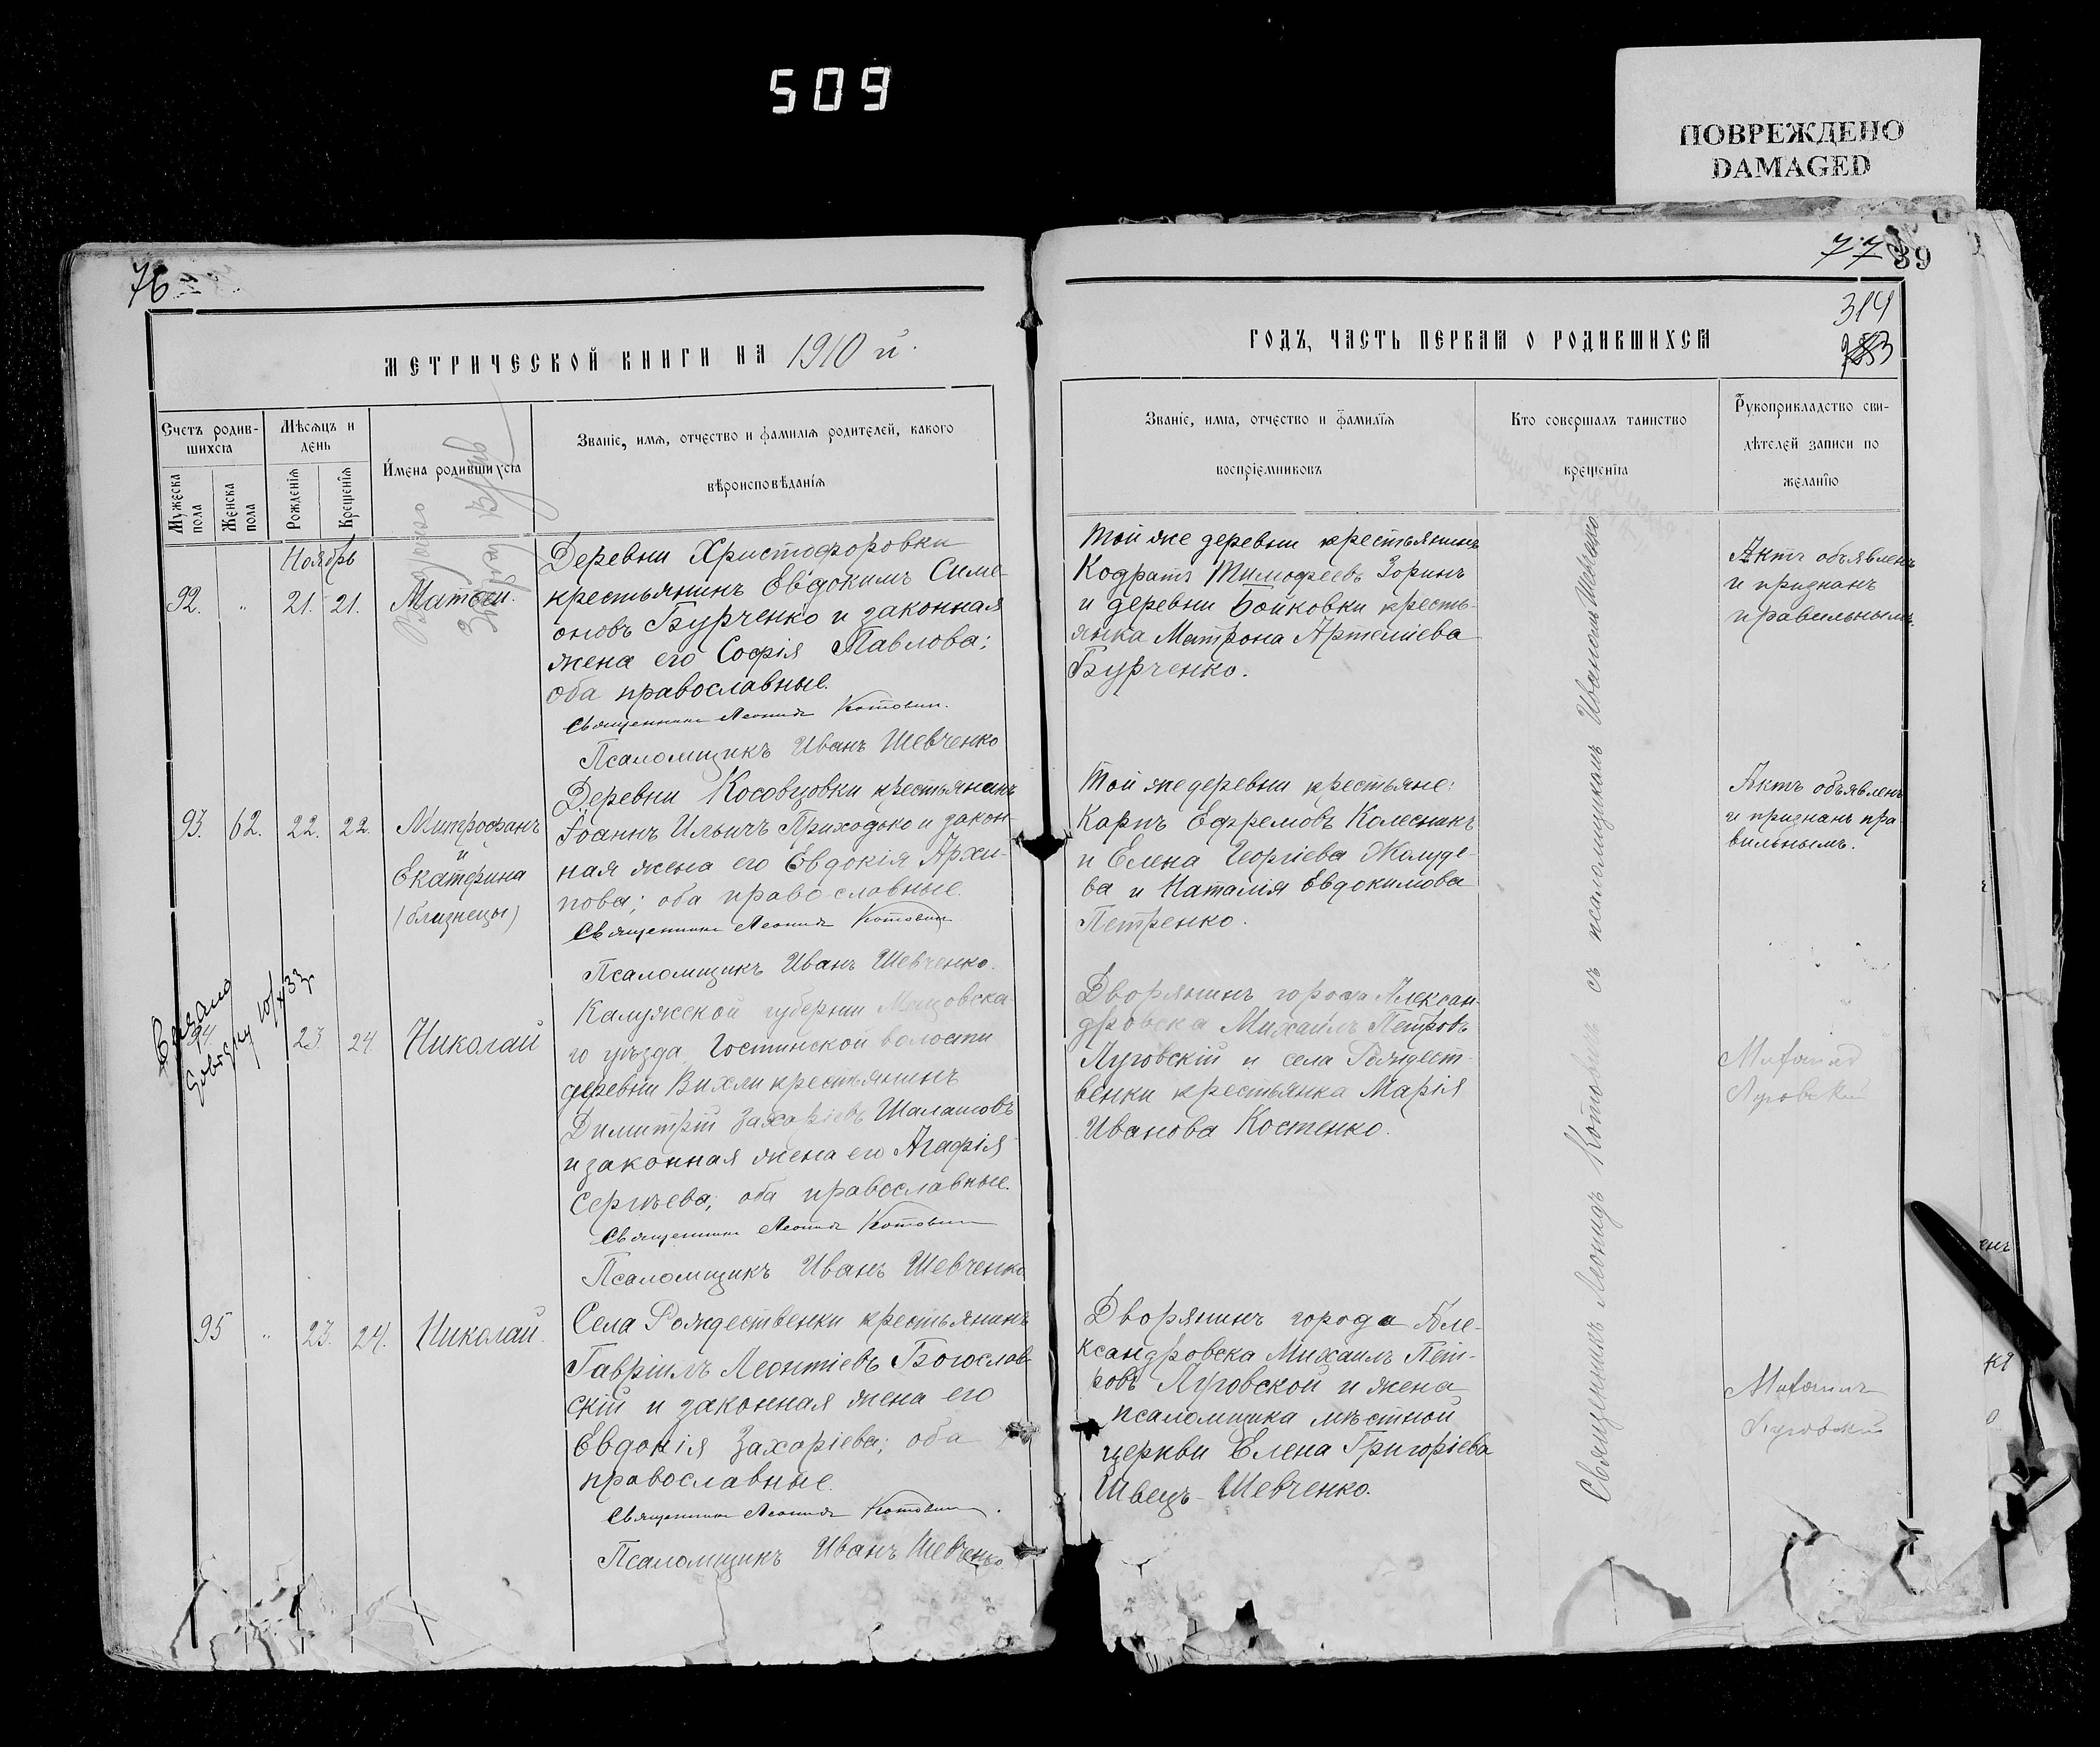 509
ПОВРЕЖДЕНО
DAMAGED
76
МЕТРИЧЕСКОЙ КНИГИ НА 1910 й.
Счетъ родив-
шихся
Мѣсяцъ и
день
Имена родившихся
Званіе, имя, отчество и фамилія родителей, какого
вѣроисповѣданія
Мужеска
пола
Женска
пола
Рожденія
Крещенія
Ноябрь
92. " 21. 21. Матѳей.
Деревни Христофоровки
крестьянинъ Евдокимъ Симе-
оновъ Бурченко и законная
жена его Софія Павлова;
оба православные.
Священникъ Леонидъ Котовичъ.
Псаломщикъ Иванъ Шевченко
93. 62. 22. 22. Митрофанъ
и
Екатерина
(близнецы)
Деревни Косовцовки крестьянинъ
Іоаннъ Ильичъ Приходько и закон-
ная жена его Евдокія Архи-
пова; оба православные.
Священникъ Леонидъ Котовичъ
Псаломщикъ Иванъ Шевченко.
94. 23. 24. Николай
Калужской губерніи Мещовска-
го уѣзда Гостинской волости
деревни Вихли крестьянинъ
Димитрій Захаріевъ Шалашовъ
и законная жена его Агафія
Сергѣева; оба православные.
Священникъ Леонидъ Котовичъ
Псаломщикъ Иванъ Шевченко
95 " 23. 24. Николай.
Села Рождественки крестьянинъ
Гавріилъ Леонтіевъ Богослов-
скій и законная жена его
Евдокія Захаріева; оба
православные.
Священникъ Леонидъ Котовичъ.
Псаломщикъ Иванъ Шевченко.
77
39
314
ГОДЪ, ЧАСТЬ ПЕРВАЯ О РОДИВШИХСЯ
Званіе, имя, отчество и фамилія
воспріемниковъ
Кто совершалъ таинство
крещенія
Рукоприкладство сви-
дѣтелей записи по
желанію
Той же деревни крестьянинъ
Кодратъ Тимофеевъ Зоринъ
и деревни Бойковки кресть-
янка Матрона Артеміева
Бурченко.
Актъ объявленъ
и признанъ
правильнымъ.
Той же деревни крестьяне:
Карпъ Ефремовъ Колесникъ
и Елена Георгіева Жолуде-
ва и Наталія Евдокимова
Петренко.
Актъ объявленъ
и признанъ пра
вильнымъ.
Дворянинъ города Алексан-
дровска Михаилъ Петровъ
Луговскій и села Рождест-
венки крестьянка Марія
Иванова Костенко.
Михаилъ
Луговской
Дворянинъ города Але-
ксандровска Михаилъ Пет-
ровъ Луговской и жена
псаломщика мѣстной
церкви Елена Григоріева
Швецъ-Шевченко.
Михаилъ
Луговский
Священникъ Леонидъ Котовичъ съ псаломщикомъ Иваномъ Шевченко